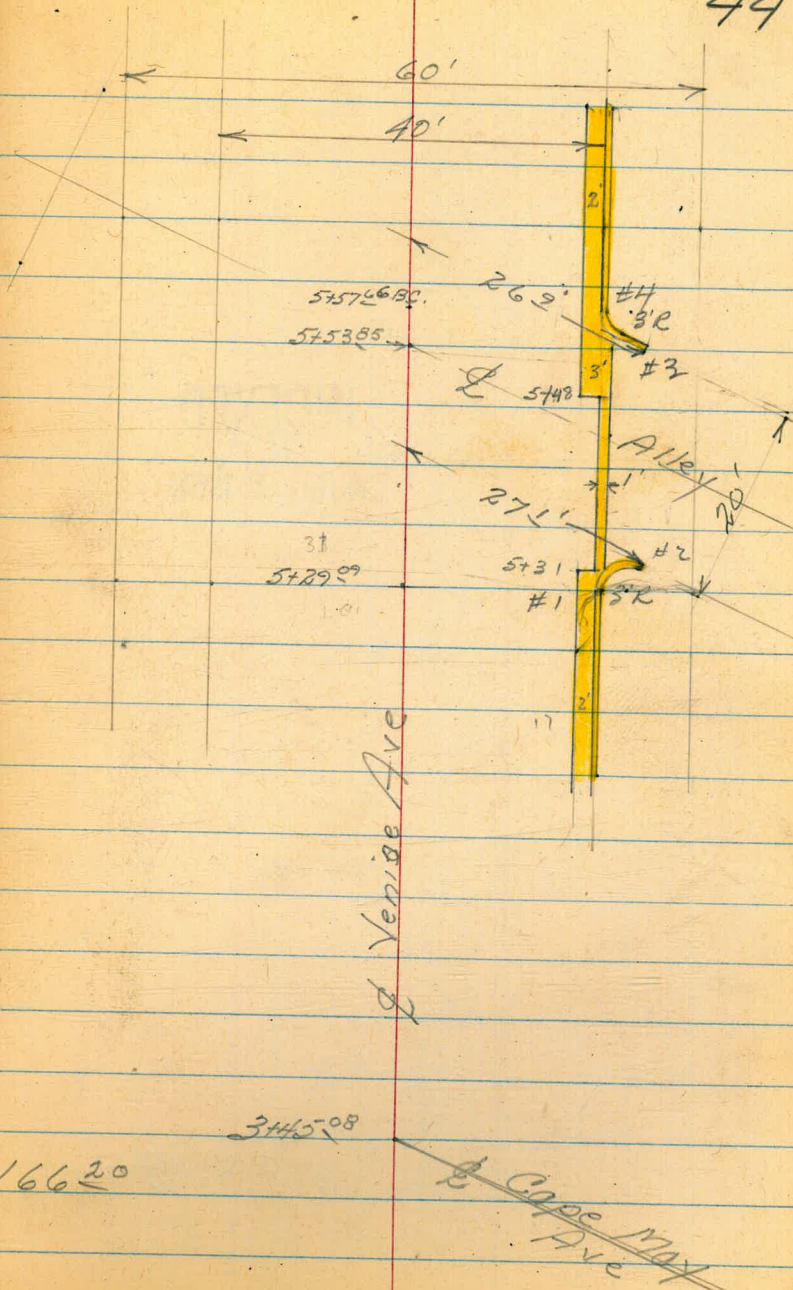 44
60'
40'
2'
26 8'
#4
5+57 66 B.C.
3'R
5+53 85
#3
℄
3'
5+48
Alley
1'
20'
27 1'
#2
31
5+31
5+29 09
#1
3'R
2'
17
℄ Venise Ave
3+45 08
166 20
℄ Cape May
Ave